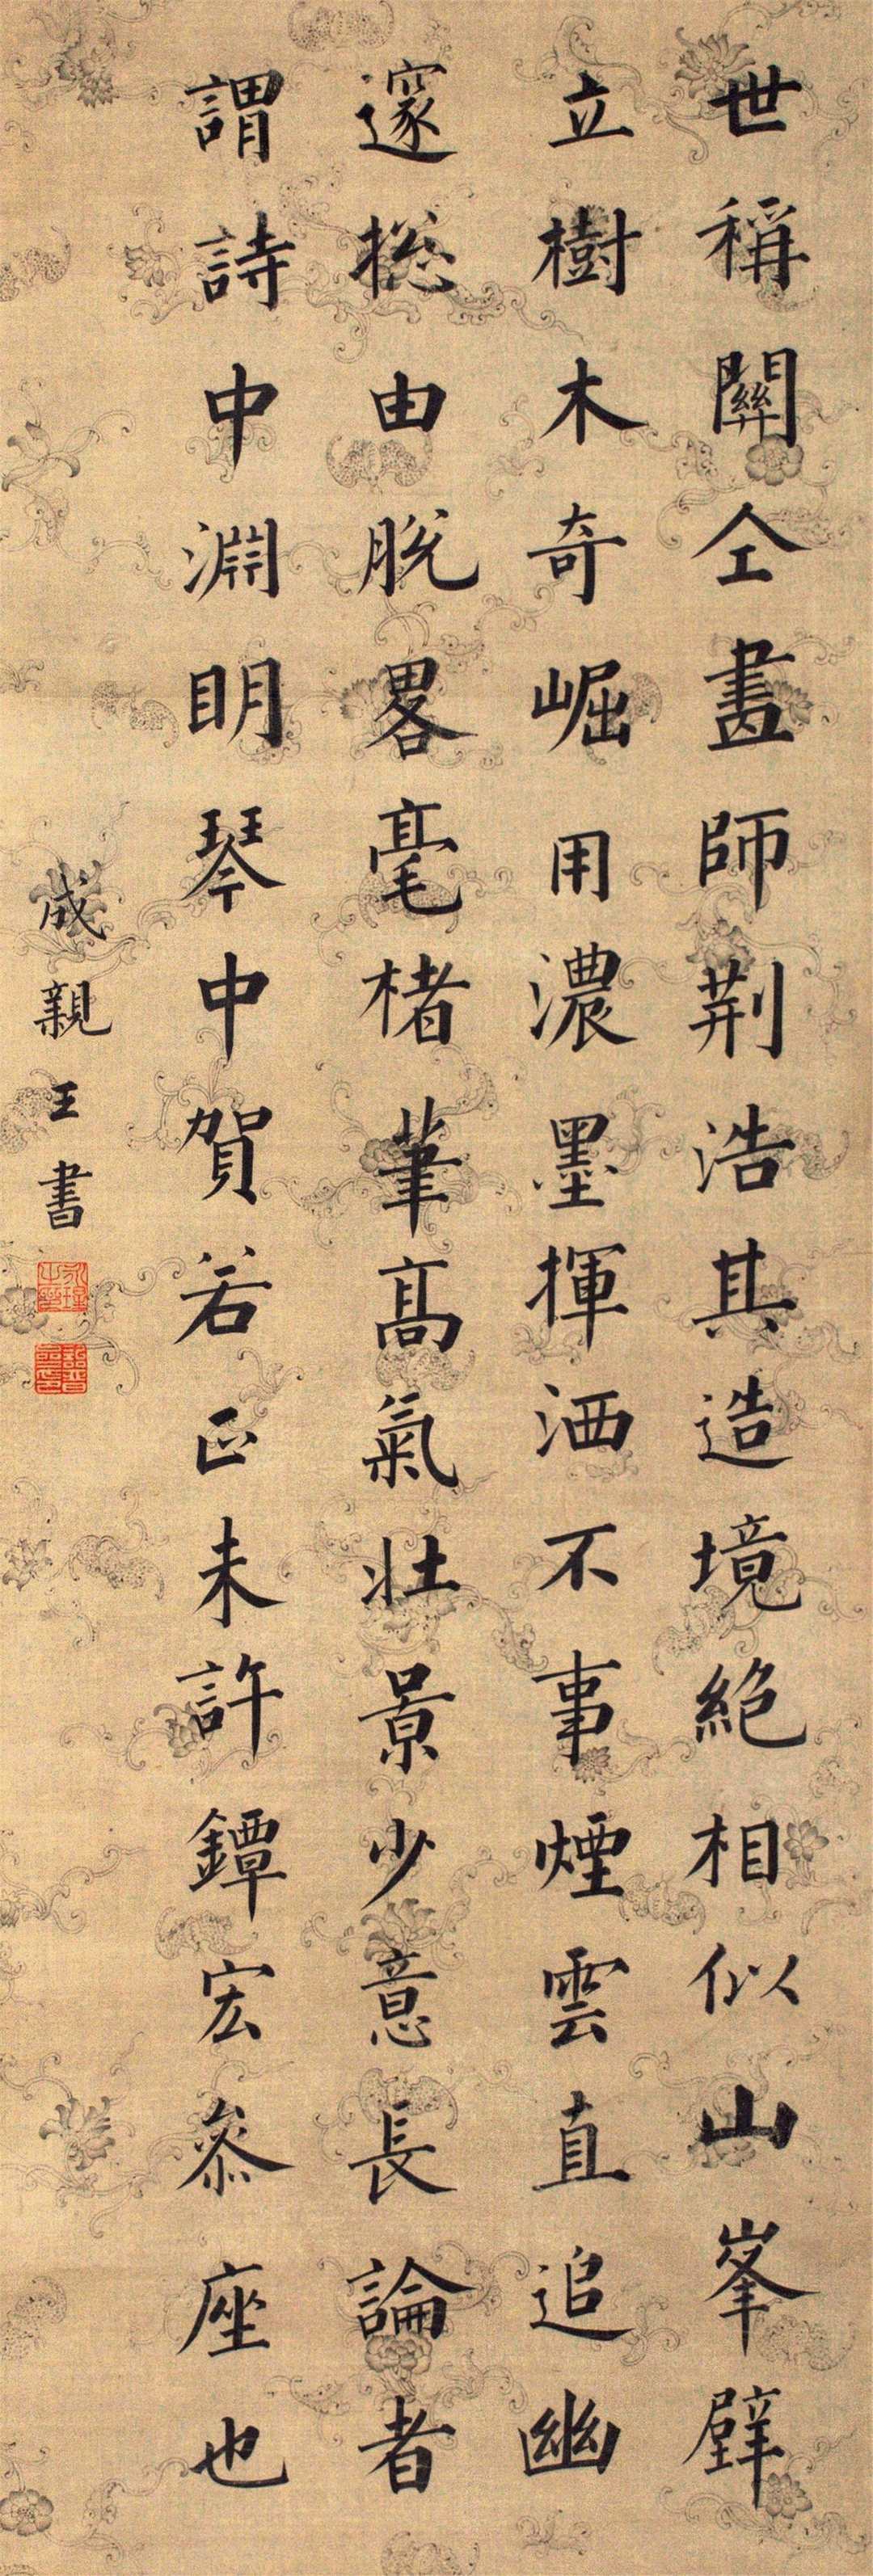 世稱關仝畫師荆浩其造境絕相似山峯壁
立樹木奇崛用濃墨揮洒不事煙雲直追幽
邃揔由脫畧毫楮筆高氣壯景少意長論者
謂詩中淵明琴中賀若正未許鐔宏叅座也
成親王書